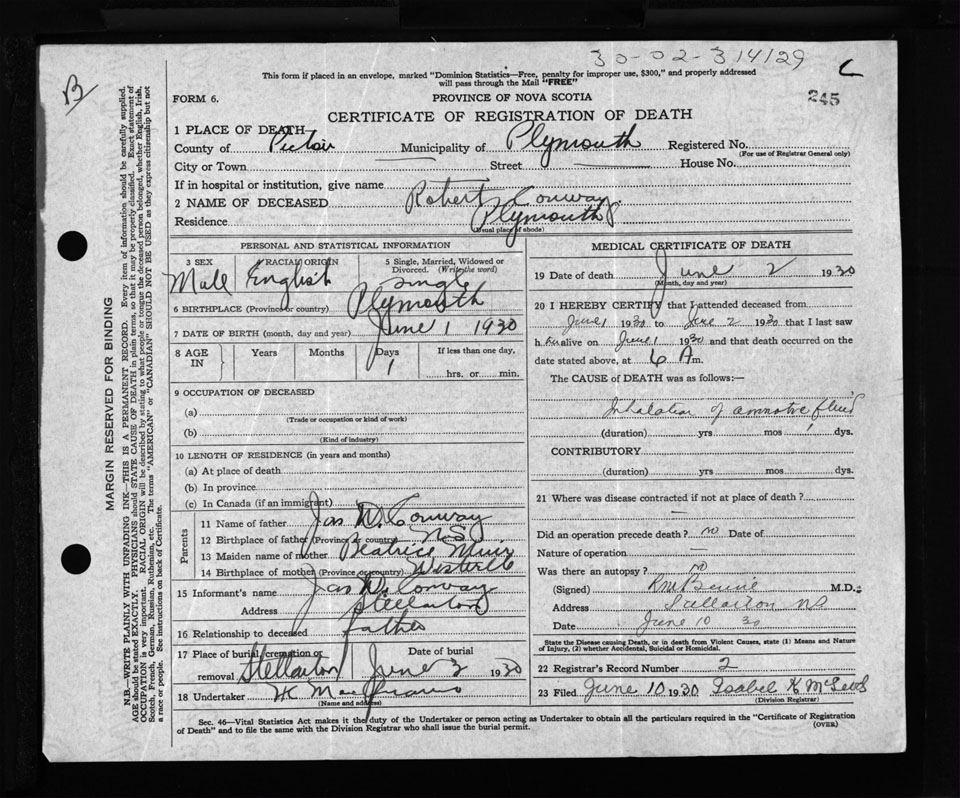 30-02-314129
This form if placed in an envelope, marked "Dominion Statistics—Free, penalty for improper use, $300," and properly addressed
will pass through the Mail "FREE"
B
FORM 6.
PROVINCE OF NOVA SCOTIA
245
CERTIFICATE OF REGISTRATION OF DEATH
1 PLACE OF DEATH
County of Pictou Municipality of Plymouth Registered No.
(For use of Registrar General only)
City or Town — Street — House No.
If in hospital or institution, give name
2 NAME OF DECEASED Robert Conway
Residence Plymouth
(Usual place of abode)
PERSONAL AND STATISTICAL INFORMATION
3 SEX Male
RACIAL ORIGIN English
5 Single, Married, Widowed or
Divorced. (Write the word)
Single
6 BIRTHPLACE (Province or country) Plymouth
7 DATE OF BIRTH (month, day and year) June 1 1930
8 AGE IN Years Months Days 1 If less than one day,
hrs. or min.
9 OCCUPATION OF DECEASED
(a)
(Trade or occupation or kind of work)
(b)
(Kind of industry)
10 LENGTH OF RESIDENCE (in years and months)
(a) At place of death
(b) In province
(c) In Canada (if an immigrant)
Parents
11 Name of father Jas W. Conway
12 Birthplace of father (Province or country) N.S.
13 Maiden name of mother Beatrice Muir
14 Birthplace of mother (Province or country) Westville
15 Informant's name Jas W. Conway
Address Stellarton
16 Relationship to deceased father
17 Place of burial, cremation or removal Stellarton
Date of burial June 3 1930
18 Undertaker
(Name and address)
MEDICAL CERTIFICATE OF DEATH
19 Date of death June 2 1930
(Month, day and year)
20 I HEREBY CERTIFY that I attended deceased from
June 1 1930 to June 2 1930 that I last saw
h im alive on June 1 1930 and that death occurred on the
date stated above, at 6 A m.
The CAUSE of DEATH was as follows:—
Inhalation of amnotic fluid
(duration) yrs mos 1 dys.
CONTRIBUTORY
(duration) yrs mos. dys.
21 Where was disease contracted if not at place of death?
—
Did an operation precede death? no Date of
Nature of operation —
Was there an autopsy? no
(Signed) M.D.
Address Stellarton NS
Date June 10 30
State the Disease causing Death, or in death from Violent Causes, state (1) Means and Nature
of Injury, (2) whether Accidental, Suicidal or Homicidal.
22 Registrar's Record Number 2
23 Filed June 10 1930 Isabel K
(Division Registrar)
Sec. 46—Vital Statistics Act makes it the duty of the Undertaker or person acting as Undertaker to obtain all the particulars required in the "Certificate of Registration
of Death" and to file the same with the Division Registrar who shall issue the burial permit.
(OVER)
MARGIN RESERVED FOR BINDING
N.B.—WRITE PLAINLY WITH UNFADING INK—THIS IS A PERMANENT RECORD. Every item of information should be carefully supplied.
AGE should be stated EXACTLY. PHYSICIANS should STATE CAUSE OF DEATH in plain terms, so that it may be properly classified. Exact statement of
OCCUPATION is very important. RACIAL ORIGIN will be described by stating to what people or tongue the deceased person belonged, whether English, Irish,
Scotch, French, German, Russian, Ruthenian, etc. The terms "AMERICAN" or "CANADIAN" SHOULD NOT BE USED as they express citizenship but not
a race or people. See instructions on back of Certificate.